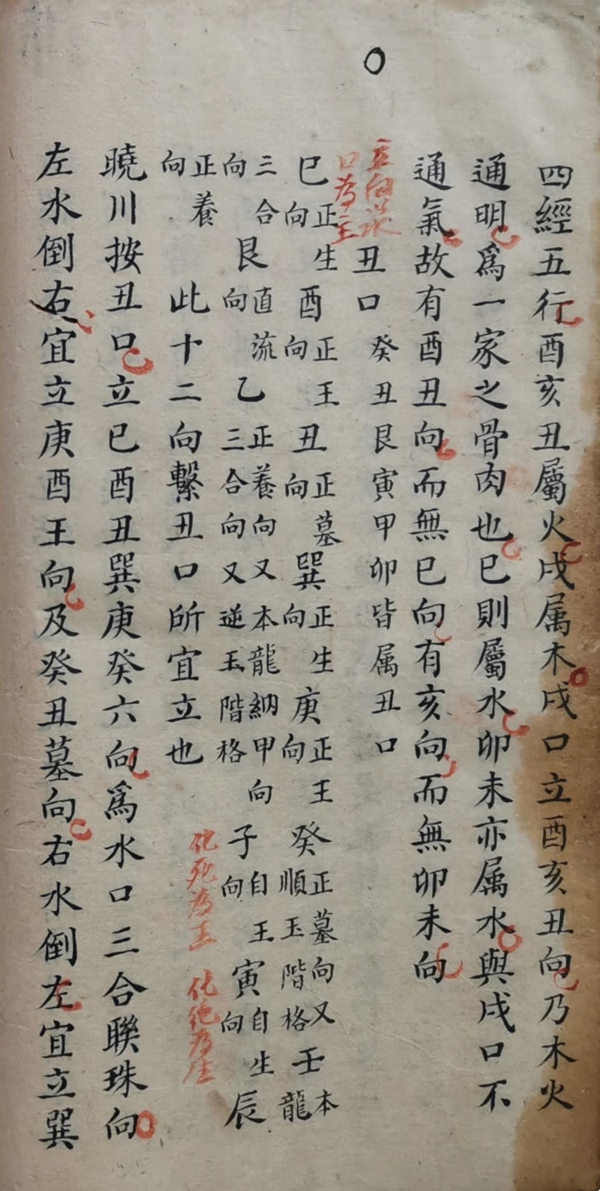 〇
四經五行酉亥丑屬火戌属木戌口立酉亥丑向乃木火
通明爲一家之骨肉也巳則屬水卯未亦属水與戌口不
通氣故有酉丑向而無巳向有亥向而無卯未向
立向
口為主
丑口 癸丑艮寅甲卯皆属丑口
巳正生向酉正王向丑正墓向巽正生向庚正王向癸正墓向又順玉階格壬本龍
三合向艮直流向乙正養向又本龍納甲向三合向又逆玉階格子自王向寅自生向辰
正養向 此十二向繫丑口所宜立也
化死為王 化绝為生
曉川按丑口立巳酉丑巽庚癸六向爲水口三合聯珠向
左水倒右宜立庚酉王向及癸丑墓向右水倒左宜立巽